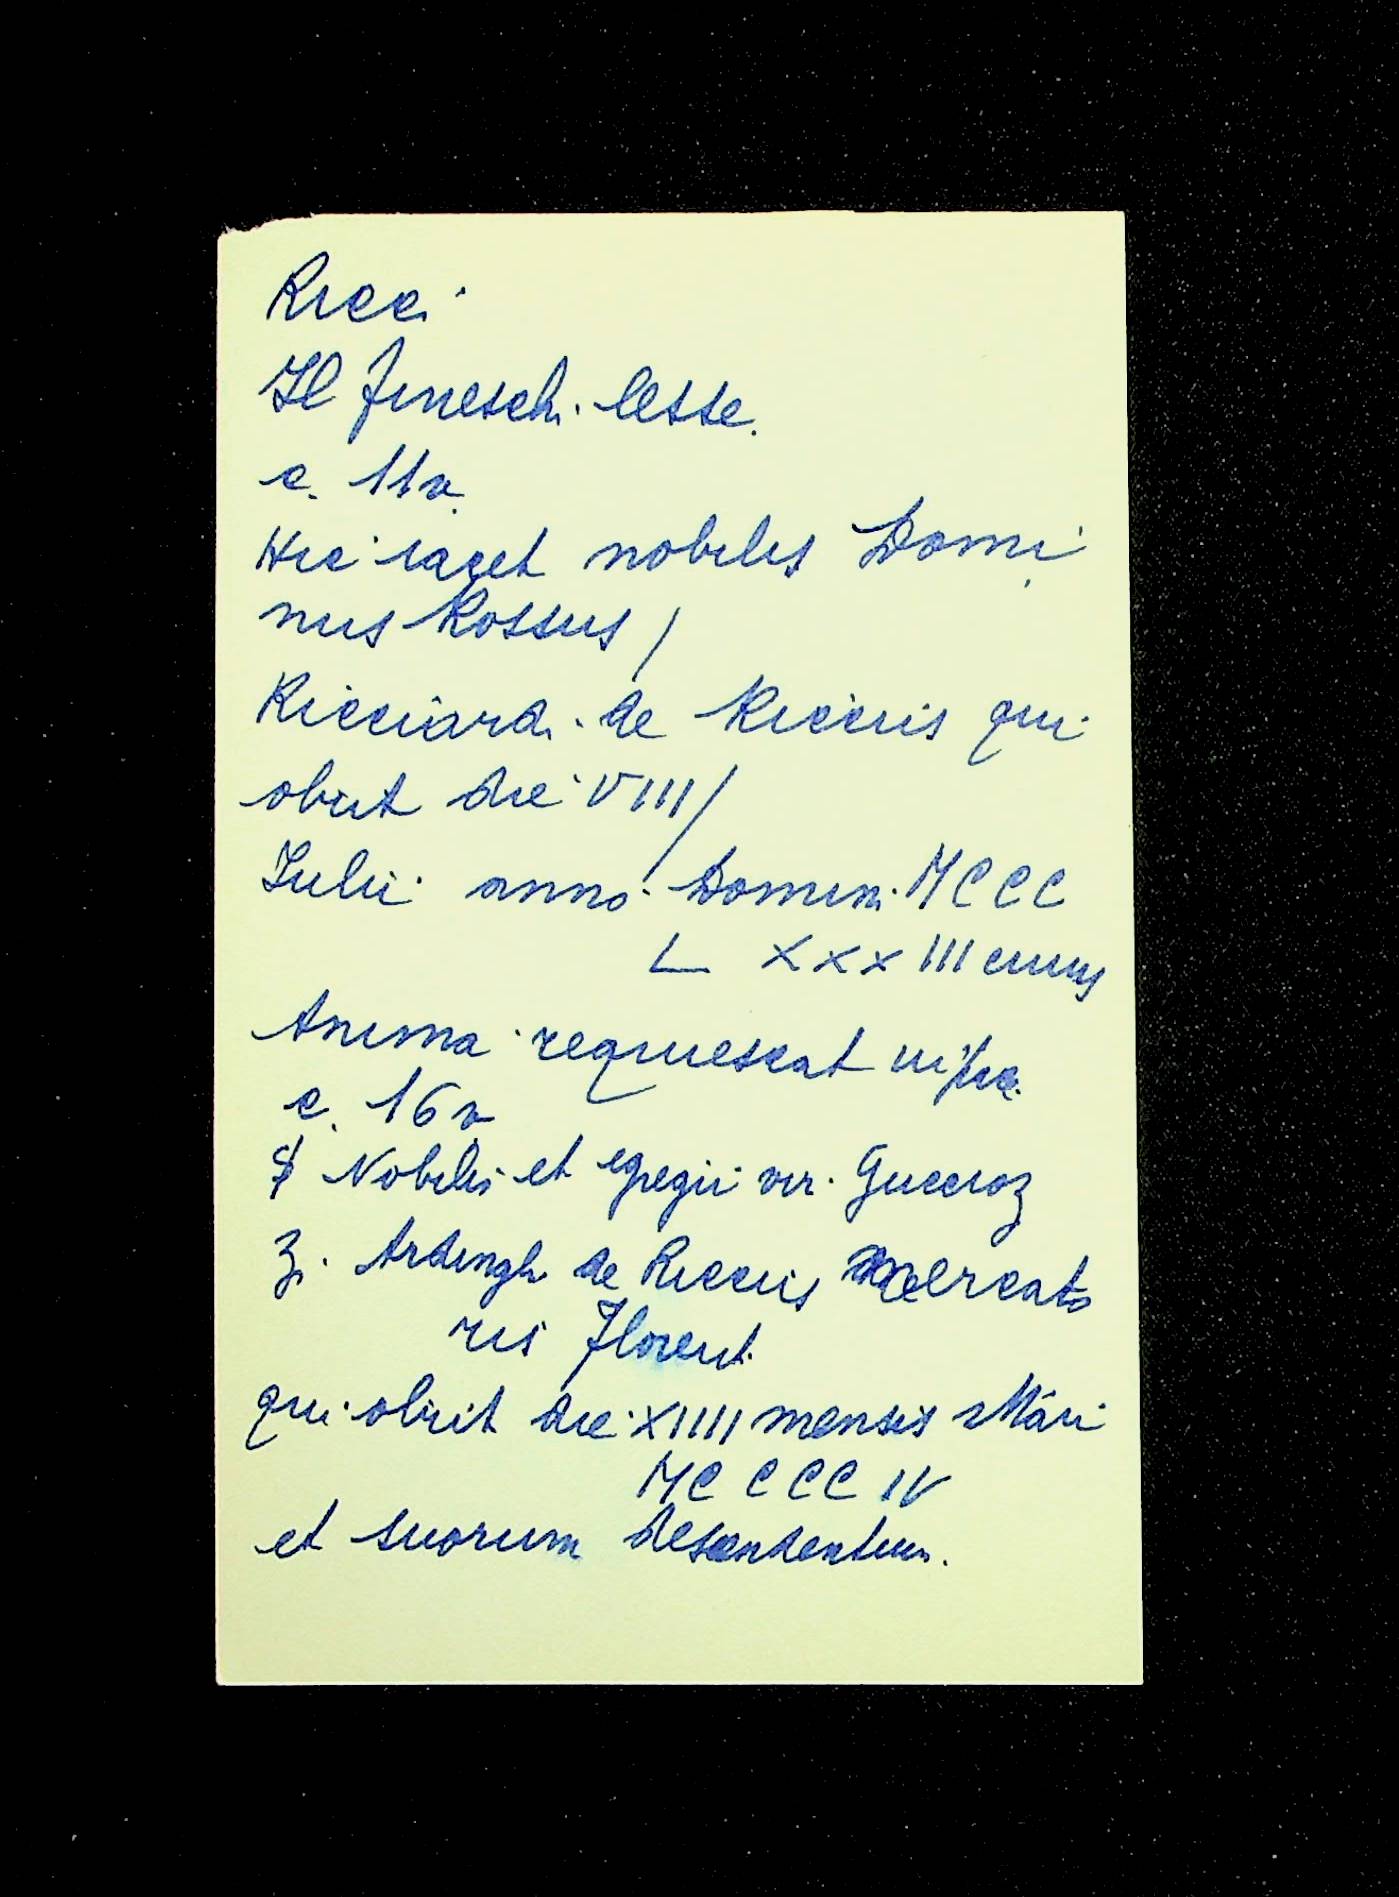 Ricci
Il Fineschi lesse.
c. 11v.
Hic iacet nobilis Domi
nus Rossus /
Ricciardi de Ricciis qui
obiit die VIII /
Iulii anno Domini MCCC
L XXX III cuius
Anima requiescat in pace.
c. 16v
S Nobilis et egregii viri Guccioz
z. Ardinghi de Ricciis mercato
ris Florent.
qui obiit die XIIII mensis Maii
MC CCC IV
et suorum descendentium.